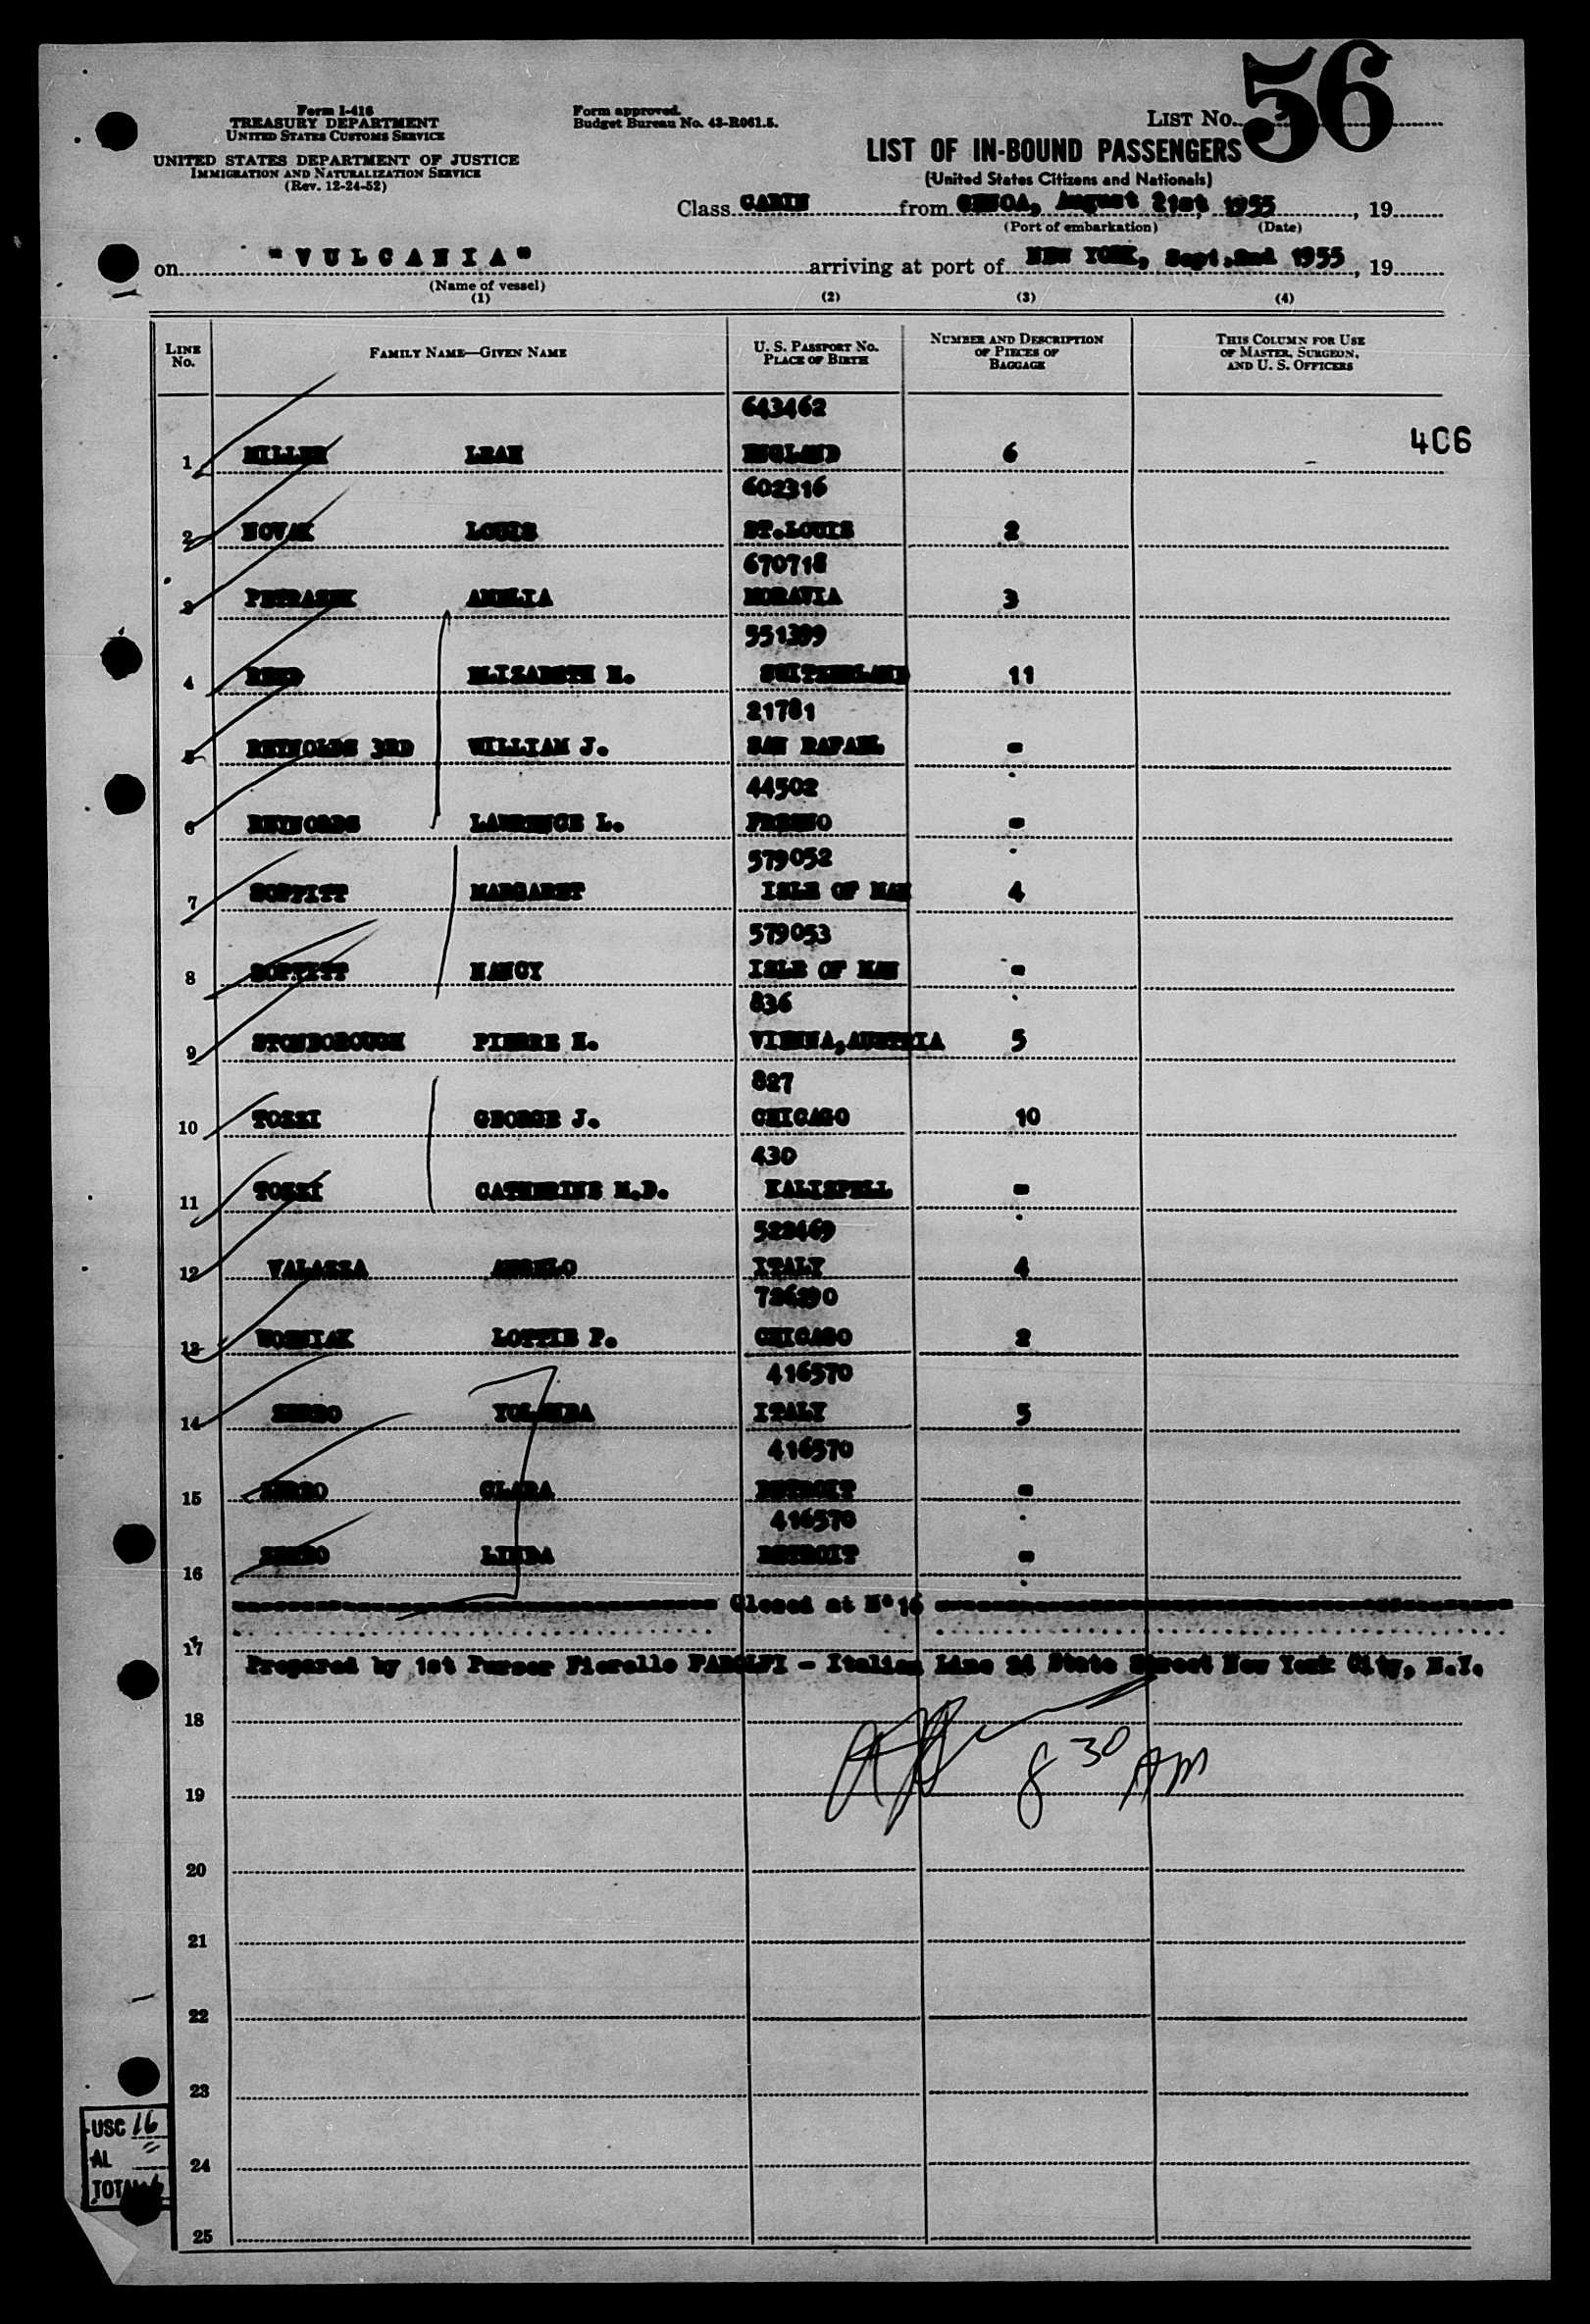 56
Form I-418
TREASURY DEPARTMENT
UNITED STATES CUSTOMS SERVICE
UNITED STATES DEPARTMENT OF JUSTICE
IMMIGRATION AND NATURALIZATION SERVICE
(Rev. 12-24-52)
Form approved.
Budget Bureau No. 43-R061.5.
LIST NO.
LIST OF IN-BOUND PASSENGERS
(United States Citizens and Nationals)
Class CABIN from GENOA, August 21st, 1955, 19
(Port of embarkation) (Date)
on "VULCANIA" arriving at port of NEW YORK, Sept.2nd 1955, 19
(Name of vessel)
(1) (2) (3) (4)
LINE No. FAMILY NAME—GIVEN NAME U. S. PASSPORT NO. PLACE OF BIRTH NUMBER AND DESCRIPTION OF PIECES OF BAGGAGE THIS COLUMN FOR USE OF MASTER, SURGEON, AND U. S. OFFICERS
643462
406
1 MILLER LEAH ENGLAND 6
602316
2 NOVAK LOUIS ST.LOUIS 2
670718
3 PETRASEK AMELIA MORAVIA 3
551399
4 REED ELIZABETH H. SWITZERLAND 11
21781
5 REYNOLDS 3RD WILLIAM J. SAN RAFAEL -
44502
6 REYNOLDS LAWRENCE L. FRESNO -
579052
7 SOPPITT MARGARET ISLE OF MAN 4
579053
8 SOPPITT NANCY ISLE OF MAN -
836
9 STONBOROUGH PIERRE VIENNA,AUSTRIA 5
827
10 TOZZI GEORGE J. CHICAGO 10
430
11 TOZZI CATHERINE M.D. KALISPELL -
522469
12 VALAZZA ANGELO ITALY 4
726290
13 WOZNIAK LOTTIE P. CHICAGO 2
416570
14 ZERBO YOLANDA ITALY 5
416570
15 ZERBO CLARA DETROIT -
416570
16 ZERBO LINDA DETROIT -
Closed at N° 16
17
Prepared by 1st Purser Fiorello PADOLFI - Italian Line 24 State Street New York City, N.Y.
18
8 30 AM
19
20
21
22
23
USC 16
AL =
24
TOTAL
25